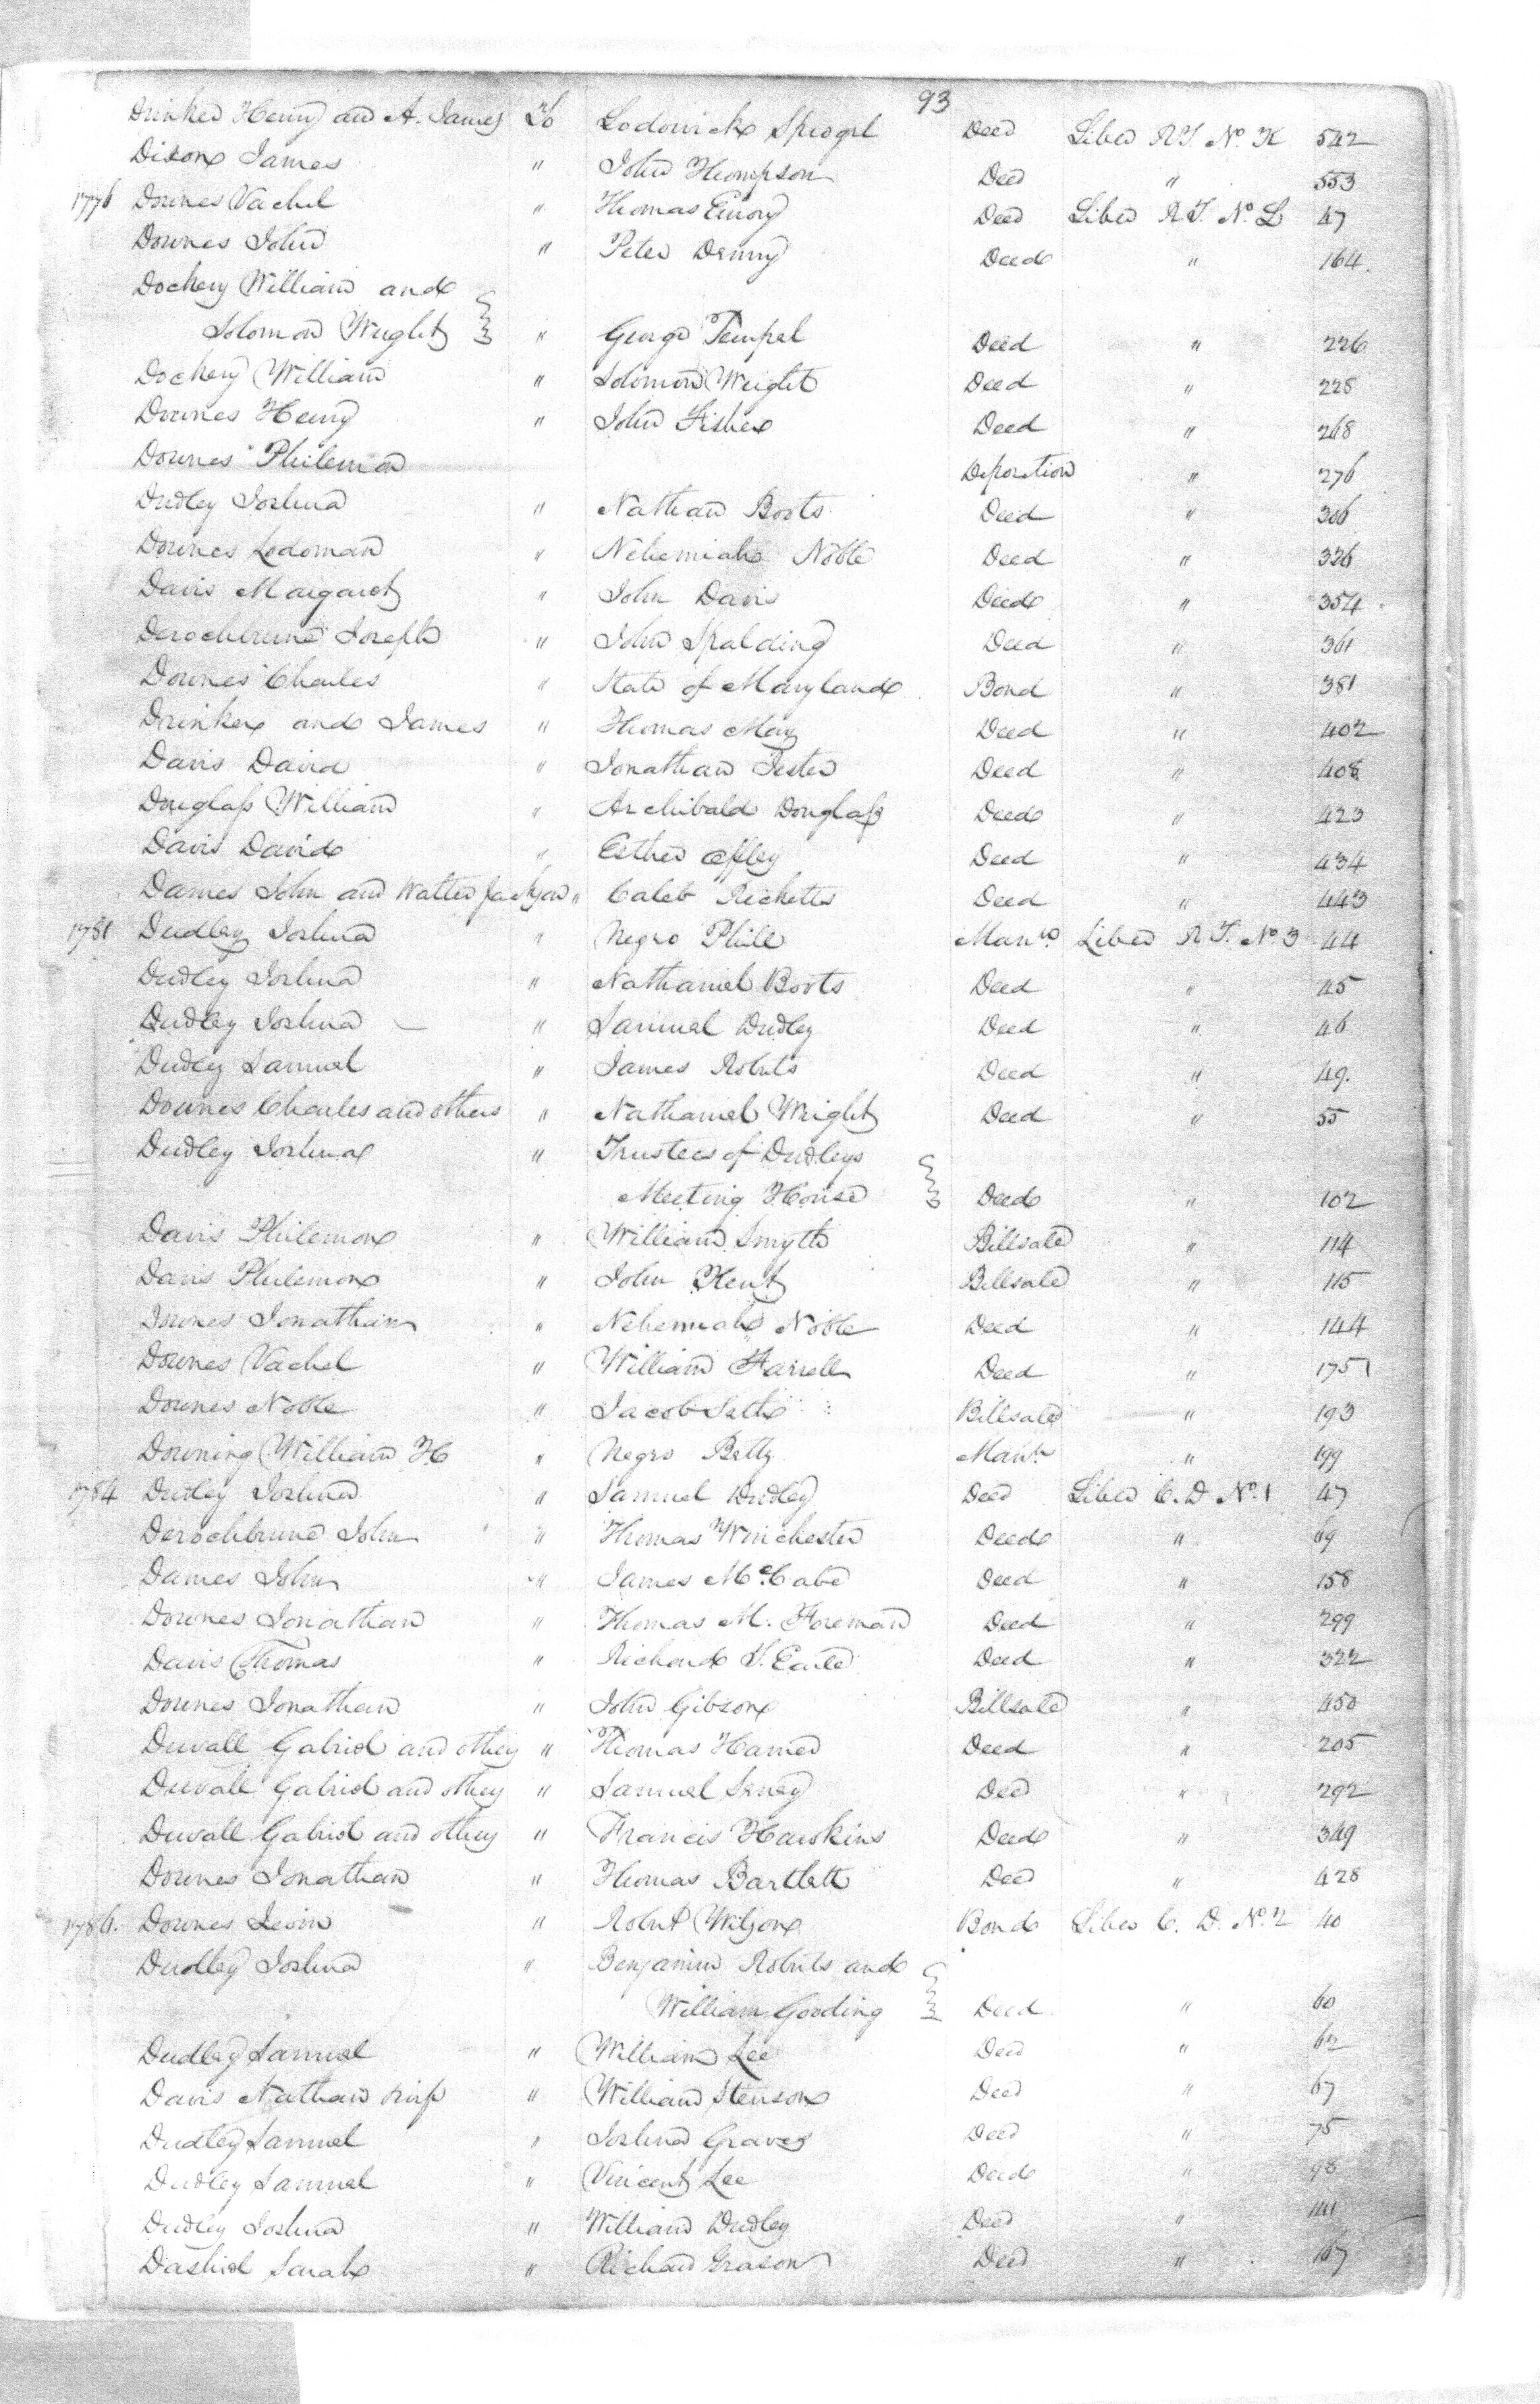 93
Drinker Henry and A. James To Lodowick Sprogel Deed Liber R T. No. K 542
Dixon James " John Thompson Deed " 553
1776 Downes Vachel " Thomas Emory Deed Liber R T. No. L 47
Downes John " Peter Denny Deed " 164.
Dockery William and
Solomon Wright " George Tempel Deed " 226
Dockery William " Solomon Wright Deed " 228
Downes Henry " John Fisher Deed " 268
Downes Philemon Deposition " 276
Dudley Joshua " Nathan Boots Deed " 306
Downes Lodoman " Nehemiah Noble Deed " 326
Davis Margaret " John Davis Deed " 354
Derochbrune Joseph " John Spalding Deed " 361
Downes Charles " State of Maryland Bond " 381
Drinker and James " Thomas May Deed " 402
Davis David " Jonathan Jester Deed " 408
Douglass William " Archibald Douglass Deed " 423
Davis David " Esther Offley Deed " 434
Dames John and Walter Jackson " Caleb Ricketts Deed " 443
1781 Dudley Joshua " Negro Phill Mann Liber R T. No. 3 44
Dudley Joshua " Nathaniel Boots Deed " 45
Dudley Joshua " Samuel Dudley Deed " 46
Dudley Samuel " James Roberts Deed " 49.
Downes Charles and others " Nathaniel Wright Deed " 55
Dudley Joshua " Trustees of Dudleys
Meeting House Deed " 102
Davis Philemon " William Smyth Billsale " 114
Davis Philemon " John Kent Billsale " 115
Downes Jonathan " Nehemiah Noble Deed " 144
Downes Vachel " William Farrell Deed " 175
Downes Noble " Jacob Seth Billsale " 193
Downing William H " Negro Betty Mann " 199
1784 Dudley Joshua " Samuel Dudley Deed Liber C. D No. 1 47
Derochbrune John " Thomas Winchester Deed " 69
Dames John " James McCabe Deed " 158
Downes Jonathan " Thomas M. Foreman Deed " 299
Davis Thomas " Richard T. Earle Deed " 322
Downes Jonathan " John Gibson Billsale " 450
Duvall Gabriel and others " Thomas Hamer Deed " 205
Duvall Gabriel and others " Samuel Seney Deed " 292
Duvall Gabriel and others " Francis Hawkins Deed " 349
Downes Jonathan " Thomas Bartlett Deed " 428
1786. Downes Levin " Robert Wilson Bond Liber C. D. No. 2 40
Dudley Joshua " Benjamin Roberts and
William Gooding Deed " 60
Dudley Samuel " William Lee Deed " 62
Davis Nathan " William Stenson Deed " 67
Dudley Samuel " Joshua Graves Deed " 75
Dudley Samuel " Vincent Lee Deed " 98
Dudley Joshua " William Dudley Deed " 141
Dashiel Sarah " Richard Grason Deed " 167